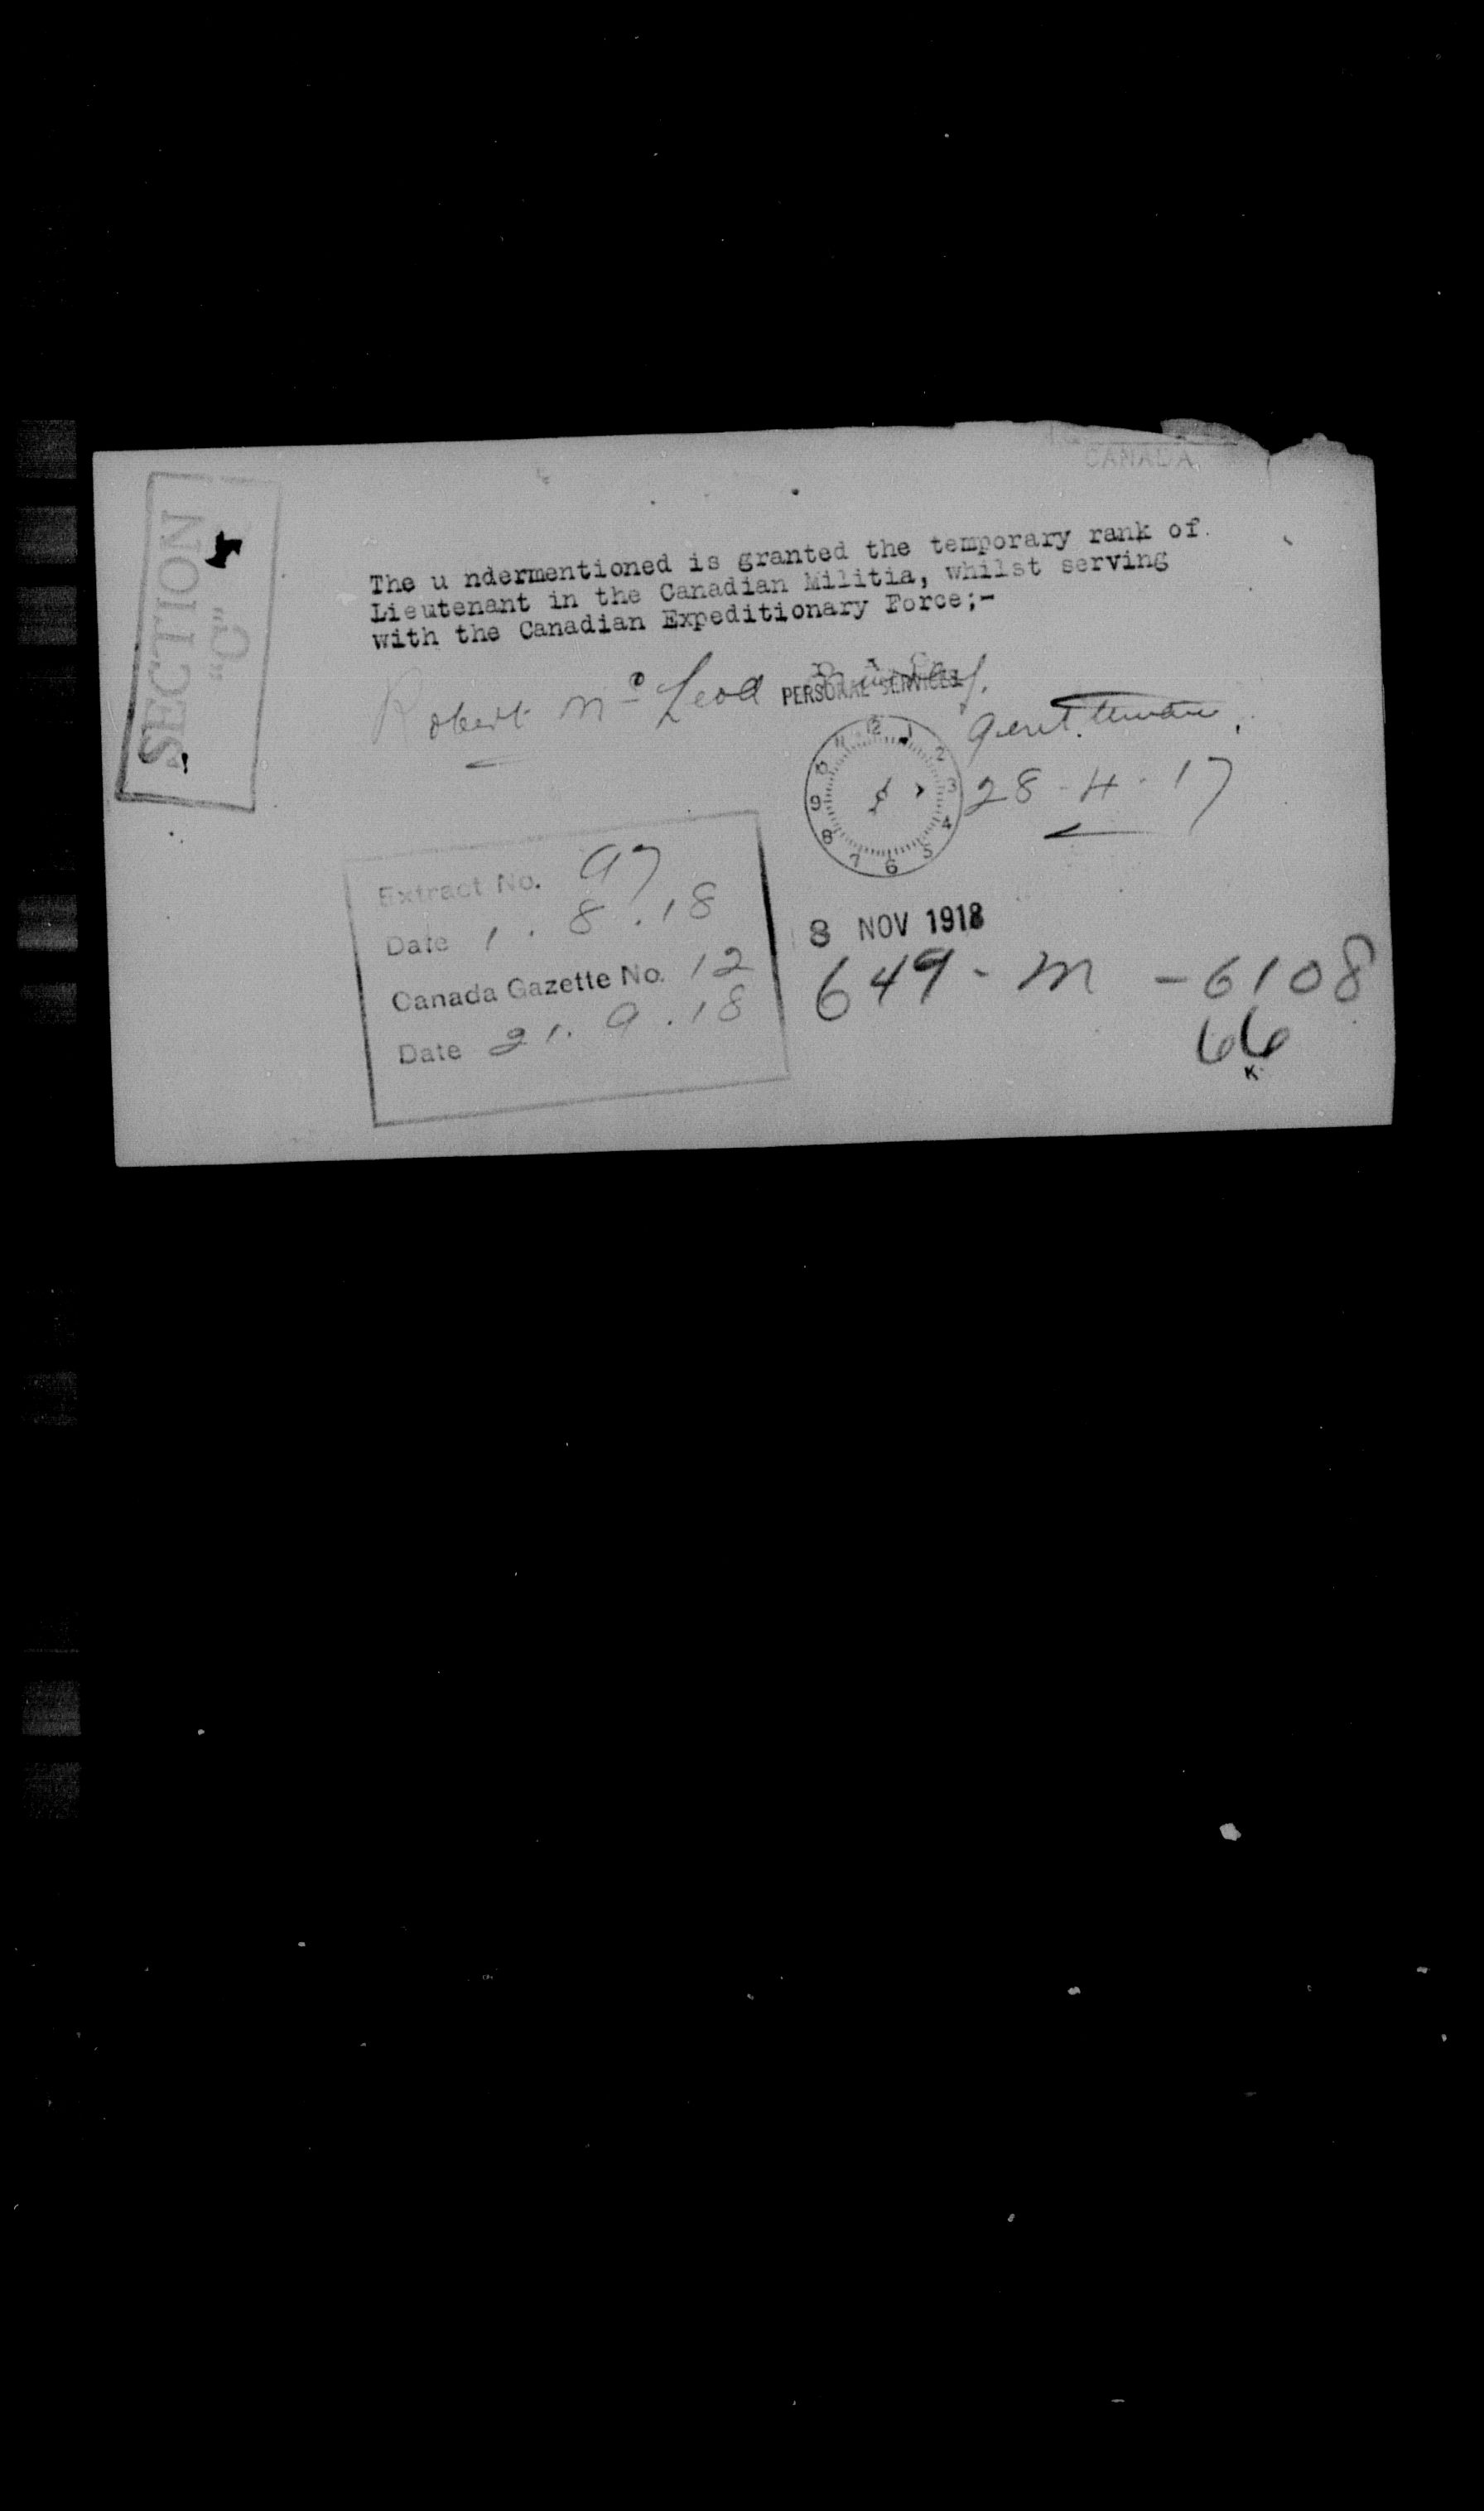 CANADA
SECTION
"C"
The u ndermentioned is granted the temporary rank of
Lieutenant in the Canadian Militia, whilst serving
with the Canadian Expeditionary Force;-
Robert Mc Leod
PERSONAL SERVICES
Gentleman.
12 1 2 3 4 5 6 7 8 9 10 11
28-4-17
Extract No. 97
Date 1.8.18
Canada Gazette No. 12
Date 21.9.18
8 NOV 1918
649-M-6108
66
K